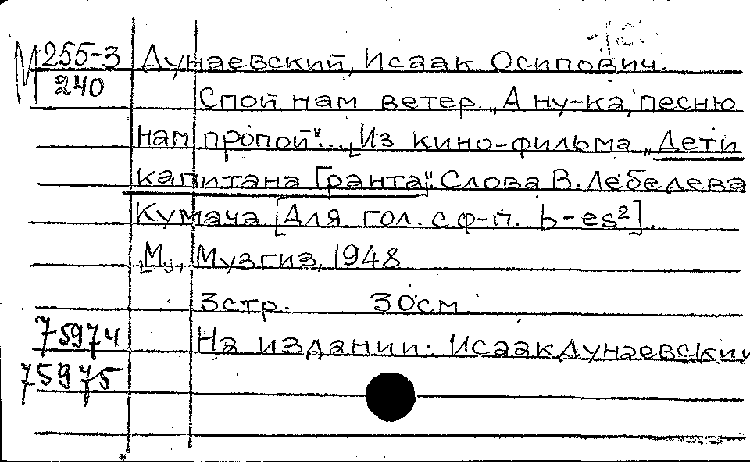 М 255-3 Дунаевский, Исаак Осипович.
240 Спой нам ветер „А ну-ка, песню
нам пропой"... [Из кино-фильма „Дети
капитана Гранта". Слова В. Лебедева
Кумача [Для гол. с ф-п. b-es²]
М., Музгиз, 1948
3 стр. 30 см.
75974 На издании: Исаак Дунаевский
75975